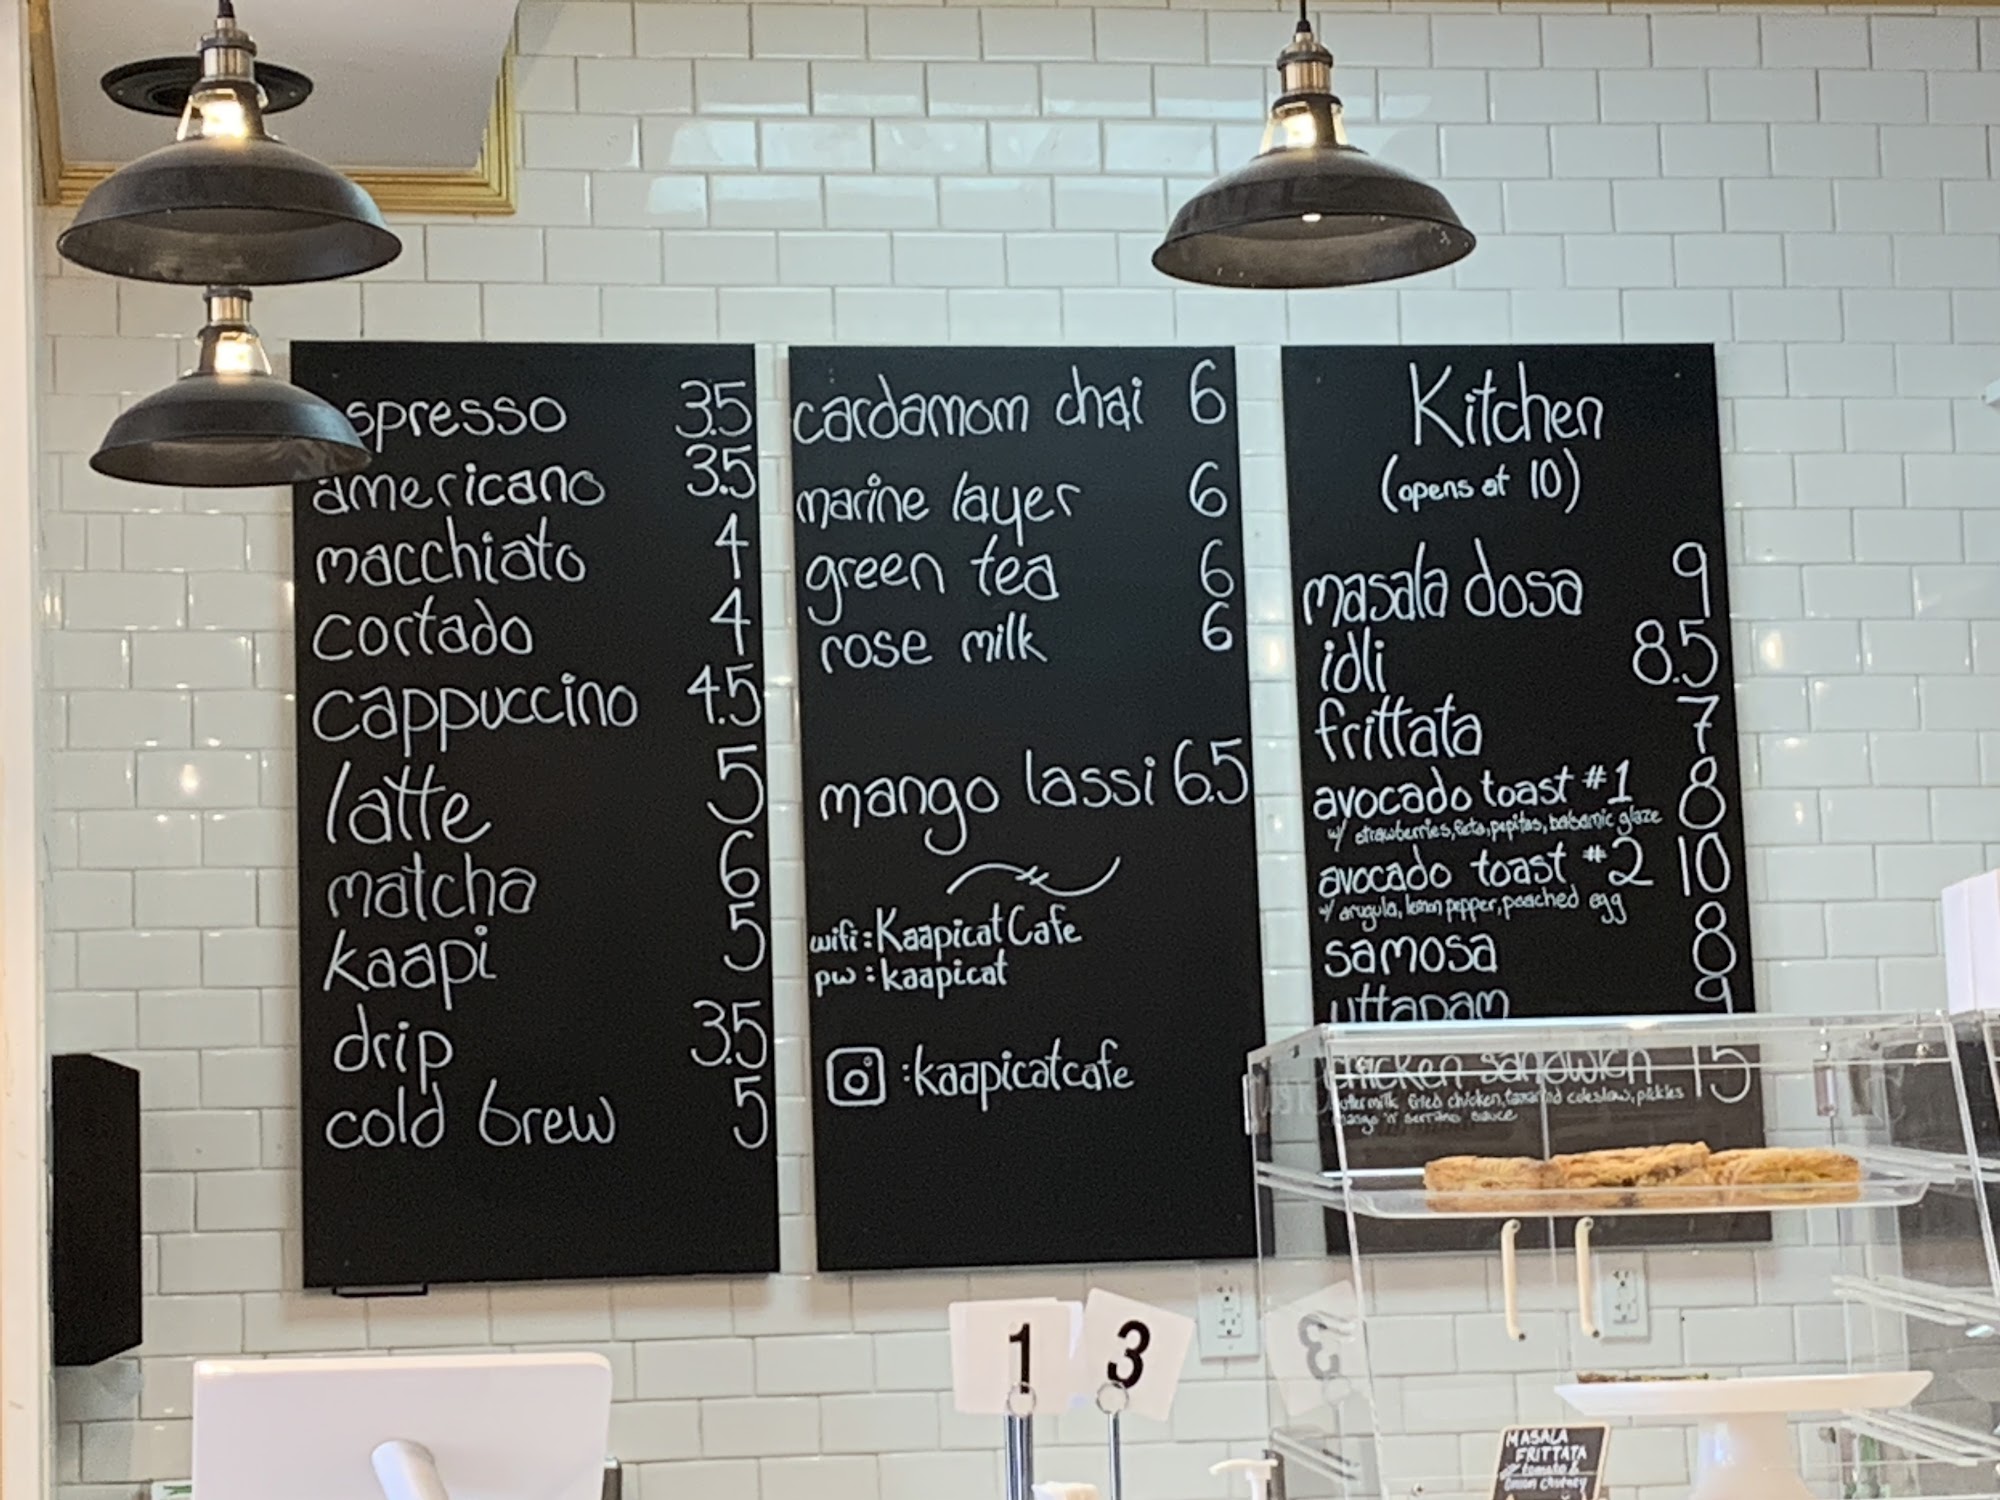 espresso 3.5
americano 3.5
macchiato 4
cortado 4
cappuccino 4.5
latte 5
matcha 6
kaapi 5
drip 3.5
cold brew 5
cardamom chai 6
marine layer 6
green tea 6
rose milk 6
mango lassi 6.5
wifi: Kaapicat Cafe
pw: kaapicat
:kaapicatcafe
Kitchen
(opens at 10)
masala dosa 9
idli 8.5
frittata 7
avocado toast #1 8
w/ strawberries, feta, pepitas, balsamic glaze
avocado toast #2 10
w/ arugula, lemon pepper, poached egg
samosa 8
uttapam 9
chicken sandwich 15
buttermilk fried chicken, tamarind coleslaw, pickles
mango 'n' serrano sauce
1
3
3
MASALA
FRITTATA
tomato &
onion chutney